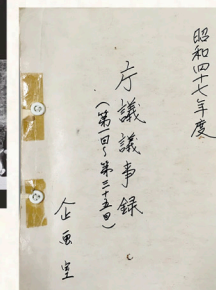 昭和四十七年度
庁議議事録
(第一回〜第三十五回)
企画室